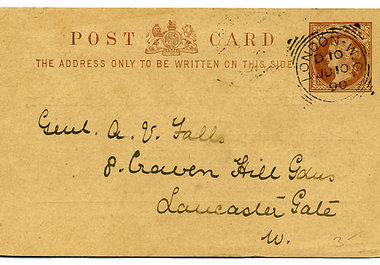 POST CARD
THE ADDRESS ONLY TO BE WRITTEN ON THIS SIDE
LONDON·W.C
D.10
JU 10
90
Genl. A. V. Falls
8. Craven Hill Gdns
Lancaster Gate
W.